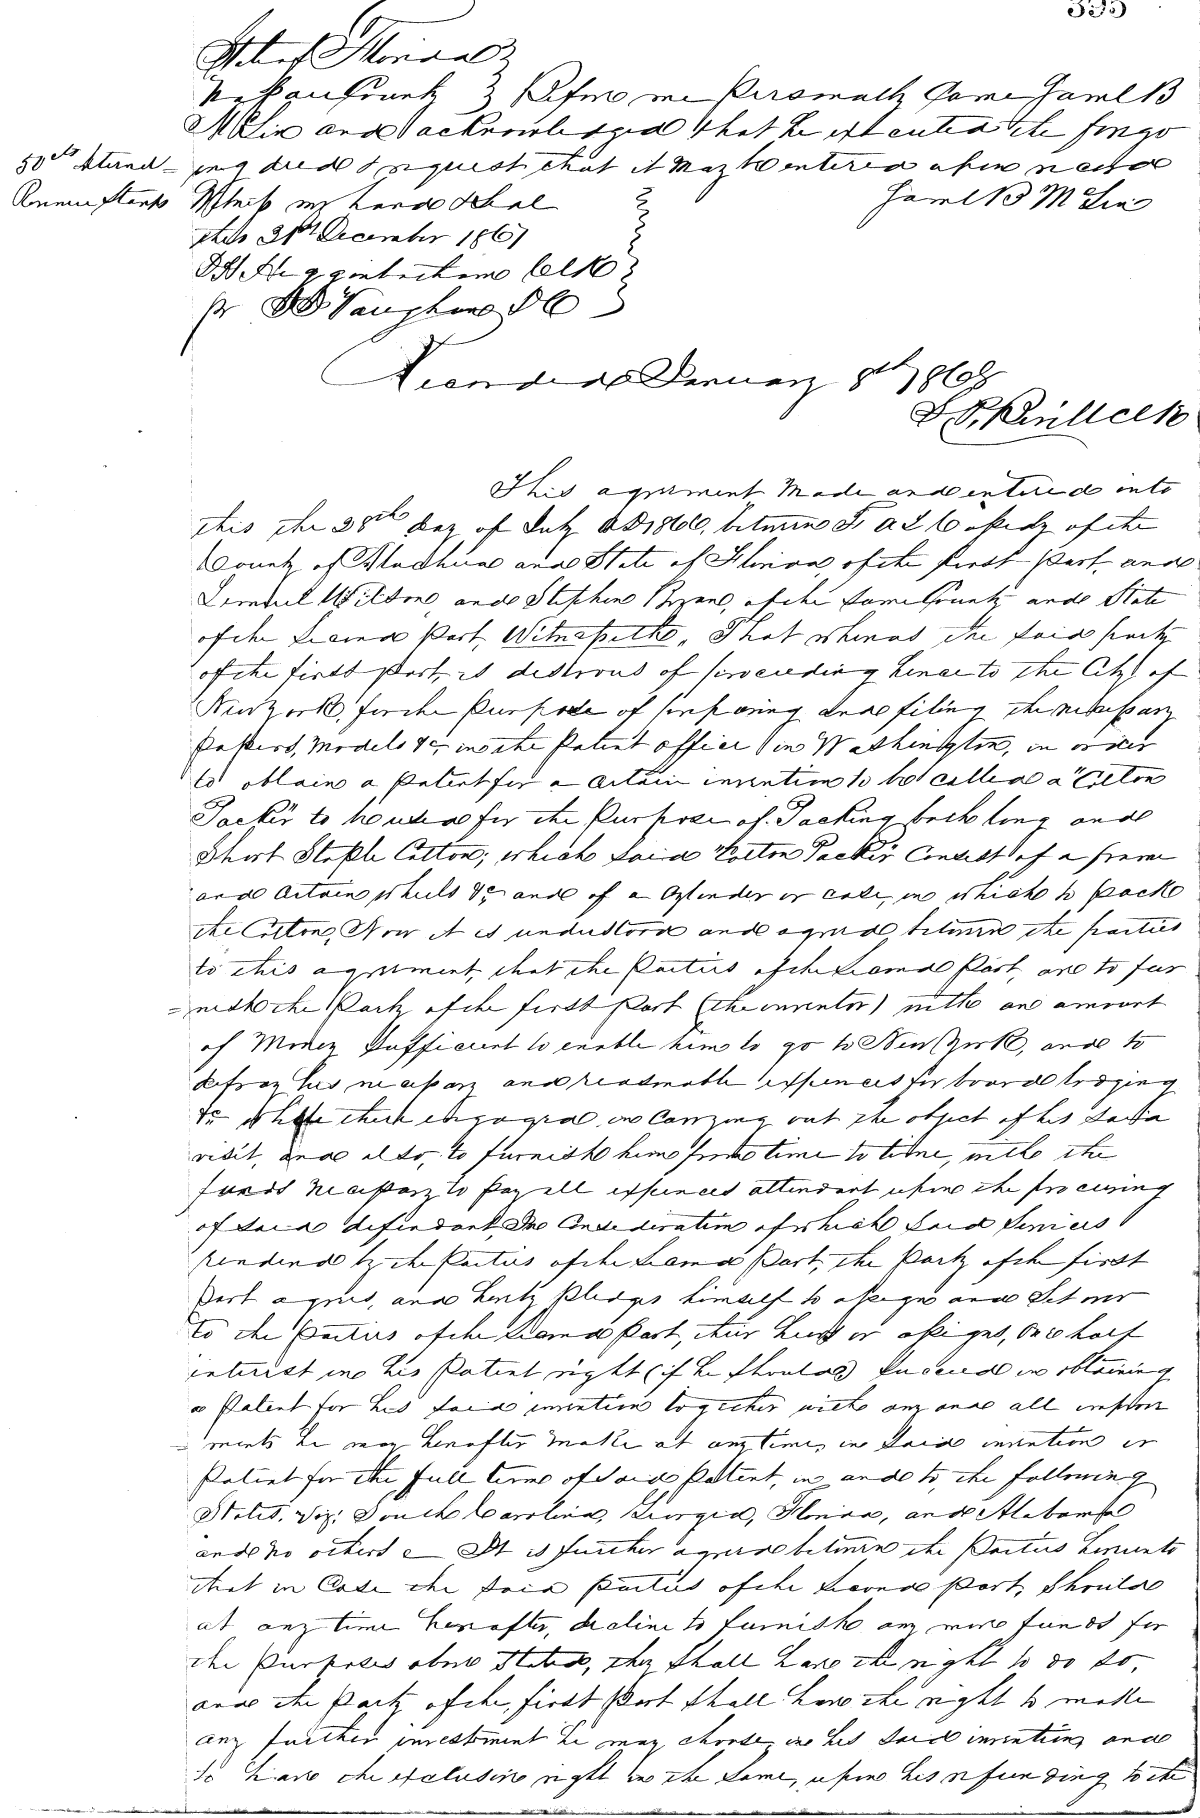 395
State of Florida
County } Before me Personally Came Saml B
McLin and acknowledged that he executed the forgo
50 cts Internal = ing deed & request that it May be entered upon record
Revenue Stamps Witness my hand & Seal Saml B McLin
this 31st December 1867
Clk
pr Vaughan D C
Recorded January 8th 1868
Clk
This agreement Made and entered into
this the 28th day of July AD 1866, between of the
County of Alachua and State of Florida, of the first Part, and
Lemuel Wilson, and Stephen Bryan, of the Same County and State
of the Second Part, Witnesseth, That whereas the said party
of the first Part, is desirous of proceeding hence to the City of
New York, for the Purpose of preparing and filing the necessary
Papers, Models &c, in the Patent office in Washington, in order
to obtain a Patent for a certain invention to be called a "Cotton
Packer" to be used for the Purpose of Packing both long and
Short Staple Cotton; which said "Cotton Packer" Consist of a frame
and certain wheels &c and of a cylinder or case, in which to pack
the Cotton, Now it is understood and agreed between the parties
to this agreement, that the Parties of the Second Part, are to fur
= nish the Party of the first Part (the inventor) with an amount
of Money Sufficient to enable him to go to New York, and to
defray his necessary and reasonable expences for board lodging
&c while there engaged in Carrying out the object of his Said
visit, and also, to furnish him from time to time, with the
funds necessary to pay all expences attendant upon the procuring
of said defendant, In Consideration of which Said Services
rendered by the Parties of the Second Part, the Party of the first
Part agrees, and hereby Pledges himself to assign and Set over
to the Parties of the Second Part, their heirs or assigns, One half
interest in his Patent right (if he should) Succeed in obtaining
a Patent for his said invention together with any and all improve
= ments he may hereafter Make at any time, in Said invention or
Patent for the full term of Said Patent, in and to, the following
States, Viz: South Carolina, Georgia, Florida, and Alabama
and no others — It is further agreed between the Parties hereunto
that in Case the said Parties of the Second Part, Should
at any time hereafter, decline to furnish any more funds for
the Purposes above Stated, they Shall have the right to do so,
and the Party of the first Part Shall have the right to make
any further investment he may choose, in his Said invention, and
to have the exclusive right in the Same, upon his refunding to the